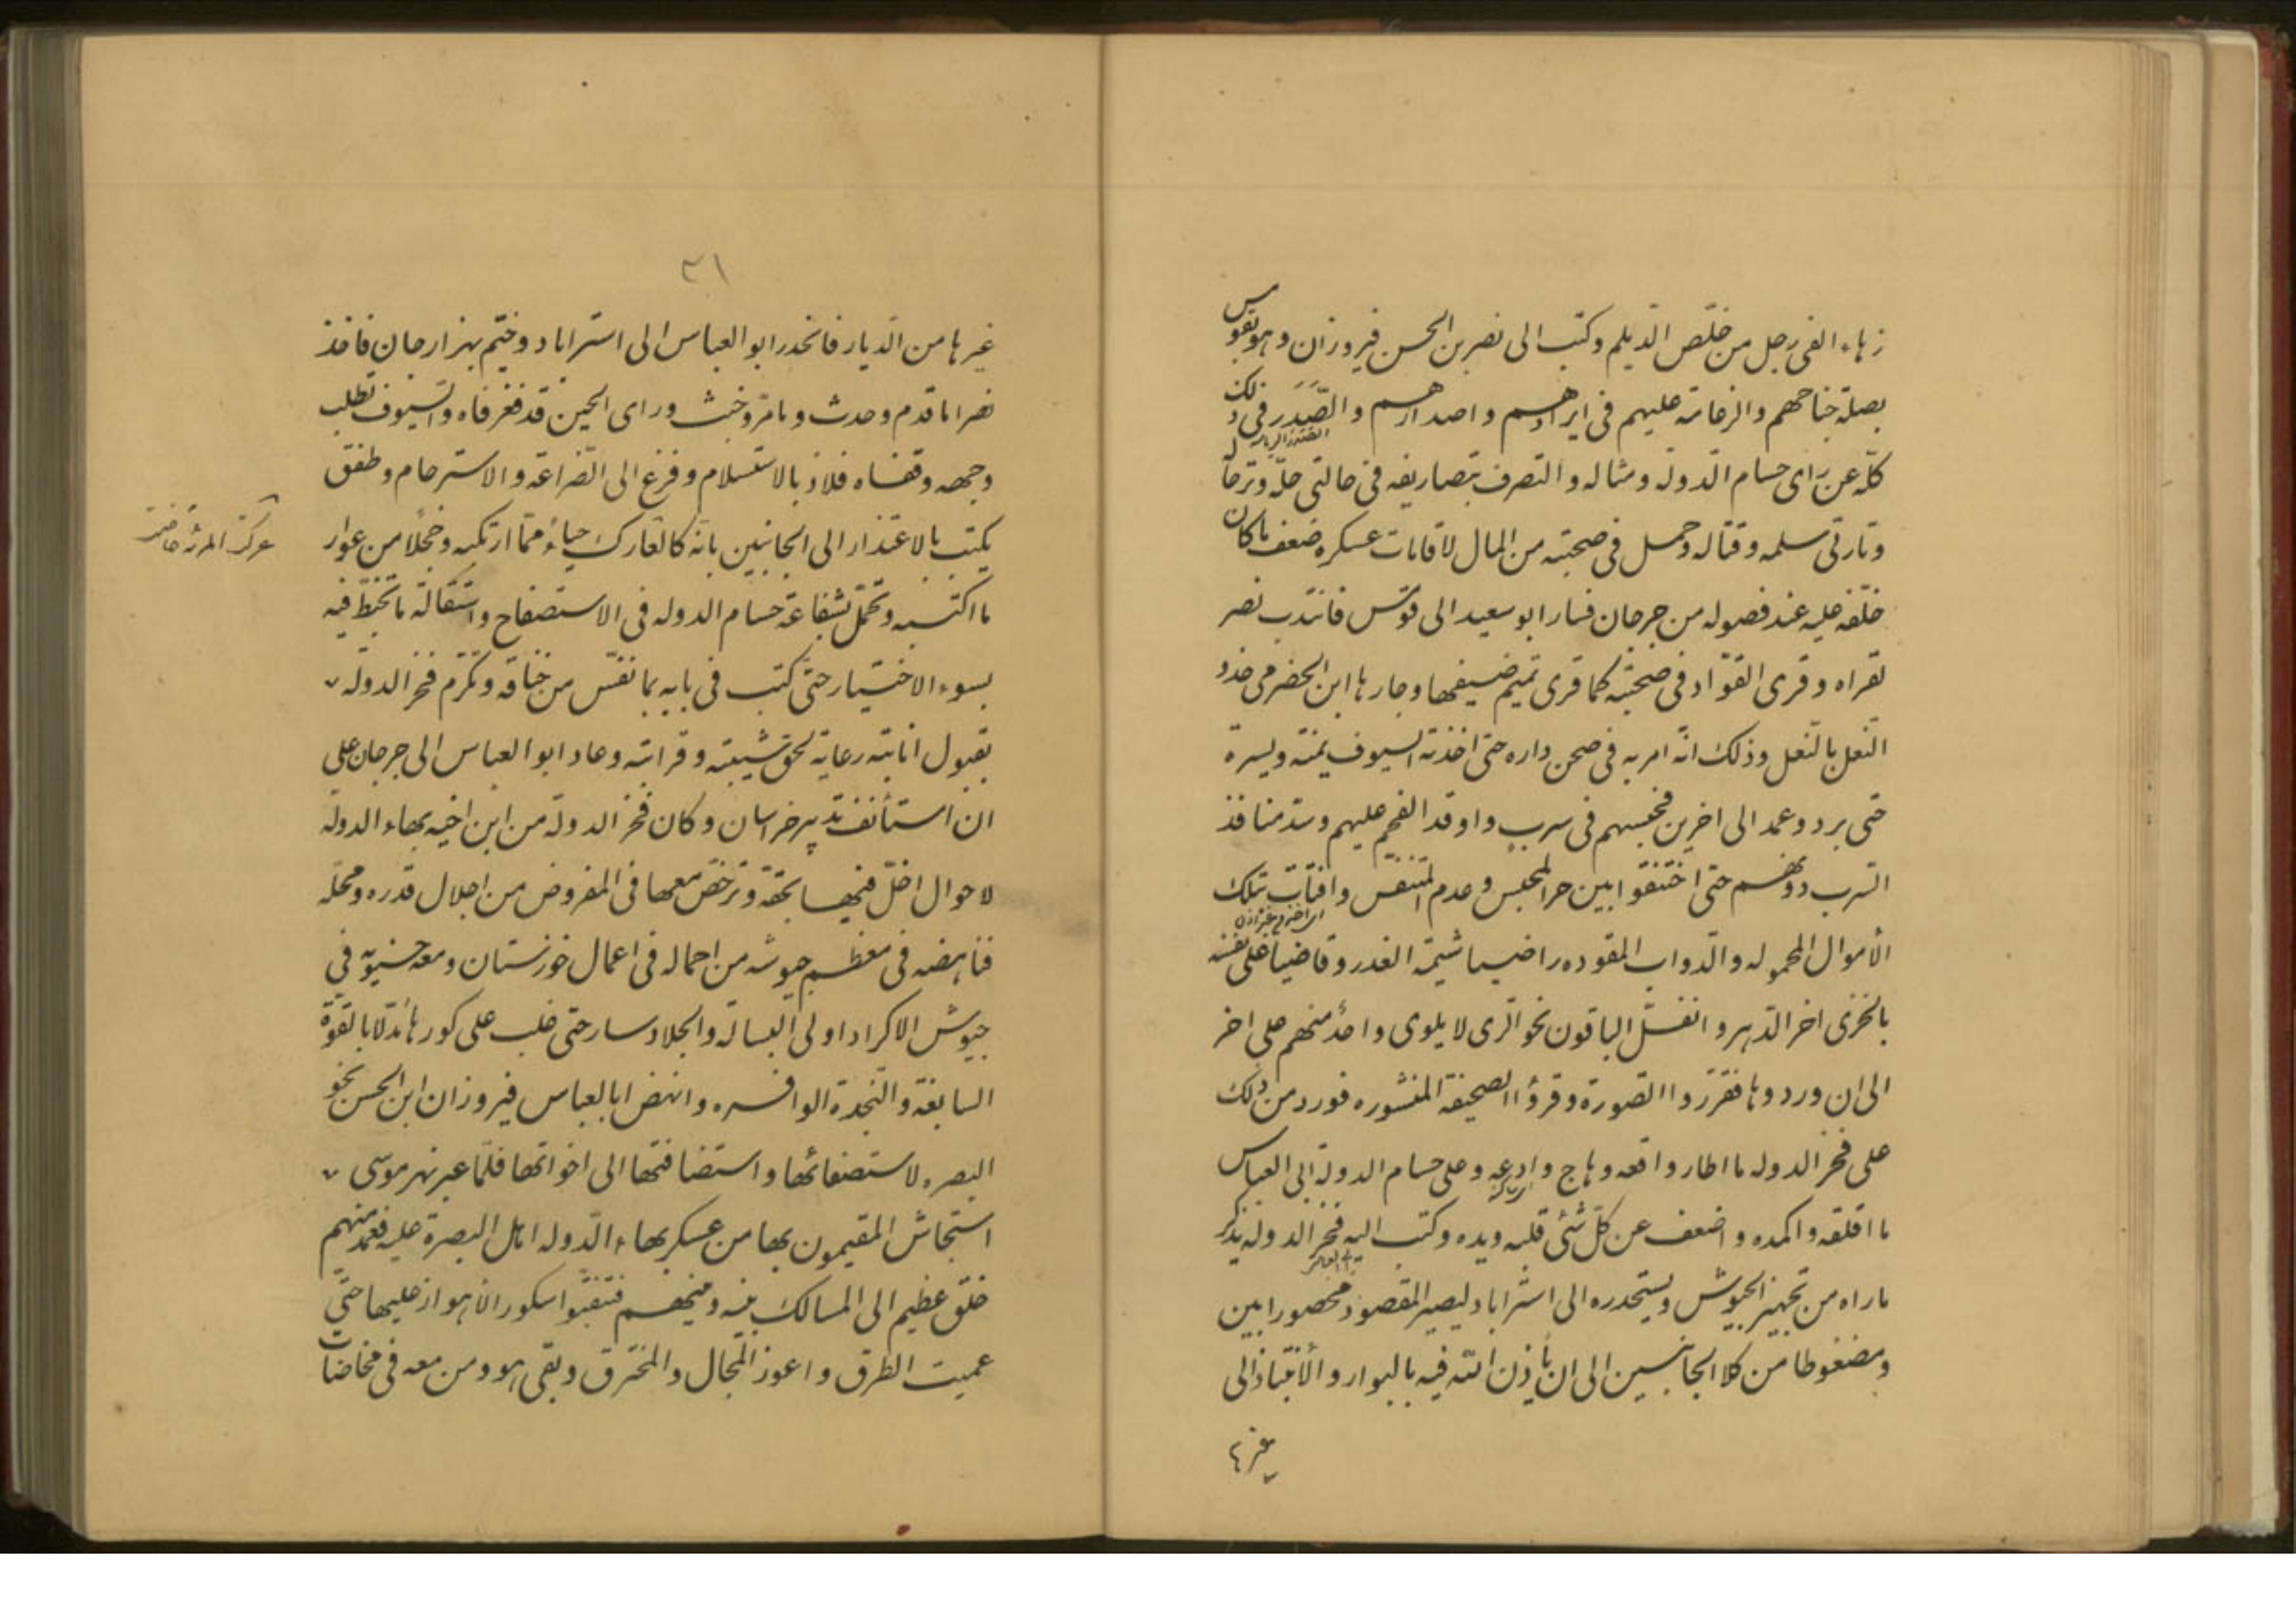 زهاء الفى رجل من خلّص الديلم وكتب الى نصر بن الحسن فيروزان وهو بقومس
بصلة جناحهم والزعامة عليهم فى ايرادهم واصدارهم والصَّدَر فى ذلك
كلّه عن راى حسام الدولة ومثاله والتصرف بتصاريفه فى حالتى حلّه وترحاله
وتارتى سلمه وقتاله وحمل فى صحبته من المال لاقامات عسكره ضعف ما كان
خلّفه عليه عند فصوله من جرجان فسار ابو سعيد الى قومس فانتدب نصر
لقراه وقرى القوّاد فى صحبته كما قرى تميم ضيفها وجارها ابن الحضرمى حذو
النّعل بالنّعل وذلك انّه امر به فى صحن داره حتى اخذته السيوف يمنة ويسرة
حتى برد وعمد الى اخرين فحبسهم فى سربٍ واوقد الفحم عليهم وسدّ منافذ
السّرب دونهم حتى اختنقوا بين حر المحبس وعدم المتنفس وافتات بتلك
الأموال المحموله والدواب المقوده راضيا شيمة الغدر وقاضيا على نفسه
بالخزى اخر الدّهر وانفسلّ الباقون نحو الرى لا يلوى واحدٌ منهم على اخر
الى ان وردوها فقرّروا الصورة وقرؤا الصحيفة المنشوره فورد من ذلك
على فخر الدوله ما اطار واقعه وهاج وادعه وعلى حسام الدولة ابى العباس
ما اقلقه واكمده واضعف عن كلّ شئى قلبه ويده وكتب اليه فخر الدوله يذكر
ما راه من تجهيز الجيوش ويستحدره الى استراباد ليصير المقصود محصورا بين
ومضغوطا من كلا الجانبين الى ان يأذن الله فيه بالبوار والأنتباذ الى
غيرها
٣١
غيرها من الديار فانحدر ابو العباس الى استراباد وخيّم بهزارجان فاخذ
نصرا ما قدم وحدث وما مرّ وخبث وراى الحين قد فغر فاه والسيوف تطلب
وجهه وقفاه فلاذ بالاستسلام وفزع الى الضراعة والاسترحام وطفق
يكتب بالاعتذار الى الجانبين بانّه كالعارك حياءً ممّا ارتكبه وخجلًا من عوار
ما اكتسبه وتحمّل بشفاعة حسام الدوله فى الاستصفاح واستقالة ما تخبّط فيه
بسوء الاختيار حتّى كتب فى بابه بما نفّس من خناقه وتكرّم فخر الدوله
بقبول انابته رعاية لحق شيبته وقرابته وعاد ابو العباس الى جرجان على
ان استأنف تدبير خراسان وكان فخر الدولة من ابن اخيه بهاء الدولة
لاحوال اخلّ فيها بحقّه وترخّص معها فى المفروض من اجلال قدره ومحلّه
فناهضه فى معظم جيوشه من احماله فى اعمال خوزستان ومعه حسنويه فى
جيوش الاكراد اولى البسالة والجلاد وسار حتى غلب على كورها مُدلّا بالقوّة
السابغة والنّجدة الوافره وانهض ابا لعباس فيروزان ابن الحسن نحو
البصره لاستصفائها واستضافتها الى اخواتها فلمّا عبر نهر موسى
استجاش المقيمون بها من عسكر بهاء الدّوله اهل البصرة عليه فعمد منهم
خلق عظيم الى المسالك بينه وبينهم فبثقوا سكور الاهواز عليها حتّى
عميت الطرق واعوز المجال والمخترق وبقى هو ومن معه فى مخاضات
عركت المرئة حاضت